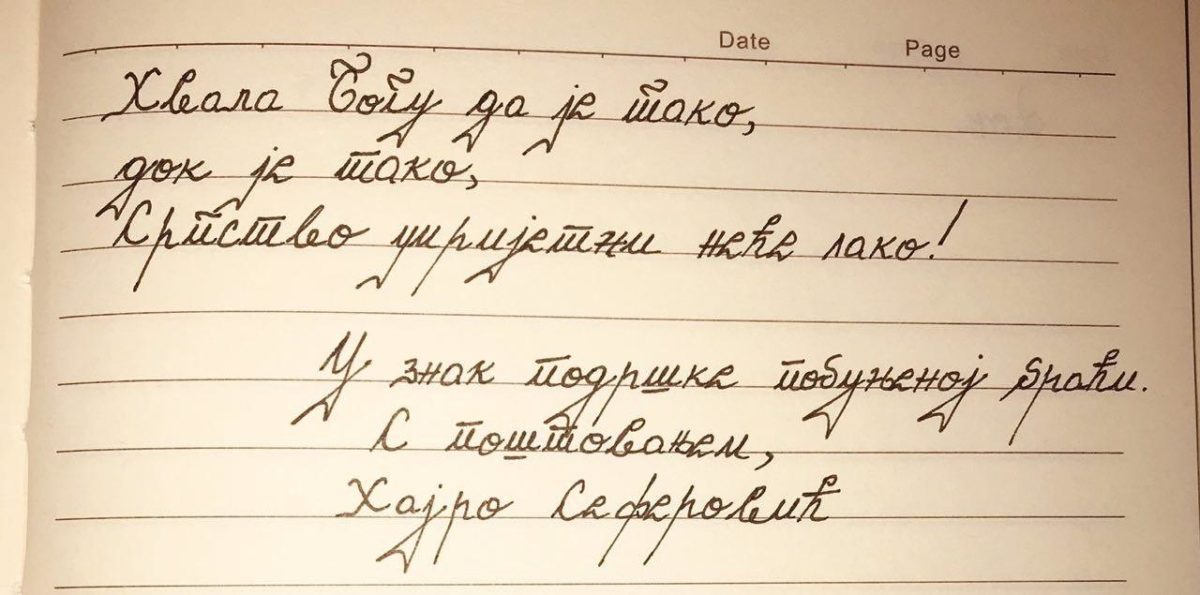 Date Page
Хвала Богу да је тако,
док је тако,
Српство умријети неће лако!
У знак подршке побуњеној браћи.
С поштовањем,
Хајро Сеферовић